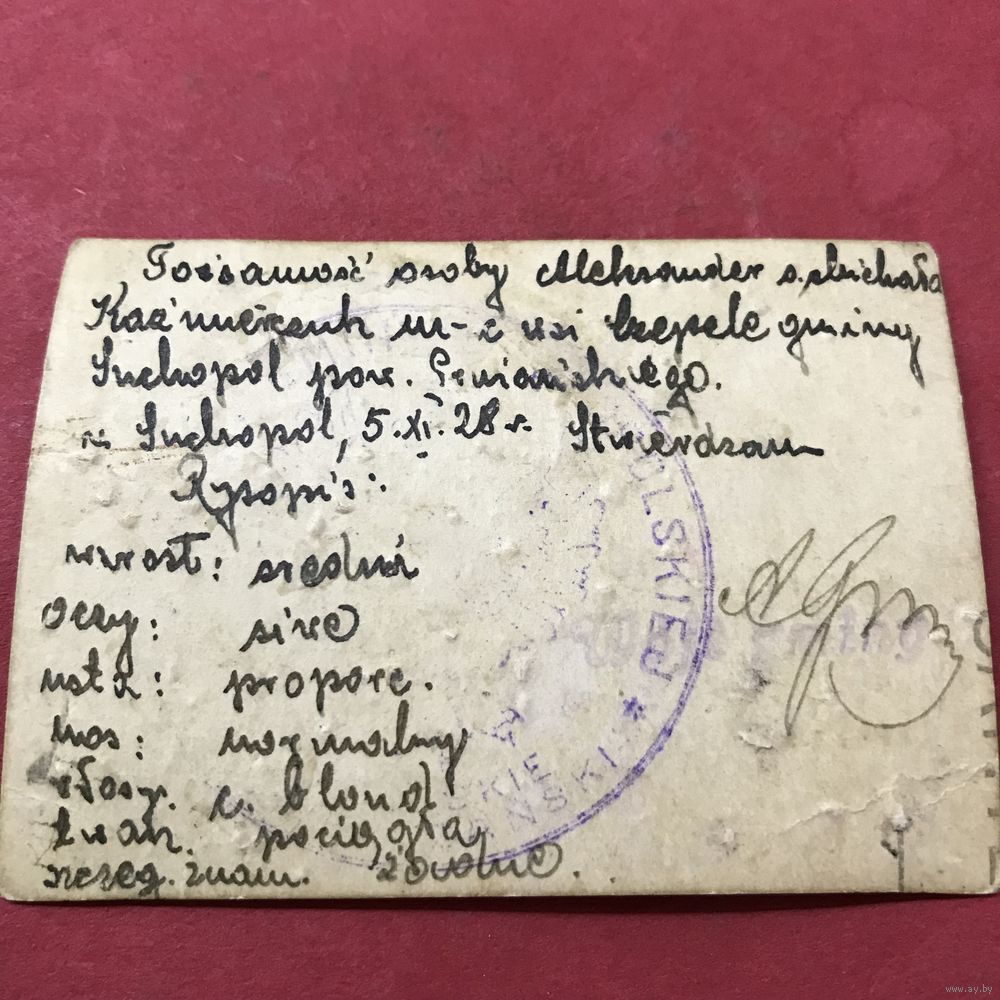 Tożsamość osoby Aleksander s. Michała
Kaźmierczuk m-c wsi Czepele gminy
Suchopol pow. Prużańskiego.
w Suchopol, 5.XI.28 r. Stwierdzam
Rysopis:
wzrost: średni
oczy: siwe
usta: proporc.
nos: normalny
włosy. c. blond
twarz. pociągła
szczeg. znam. żadne.
POLSKIEJ *
www.ay.by